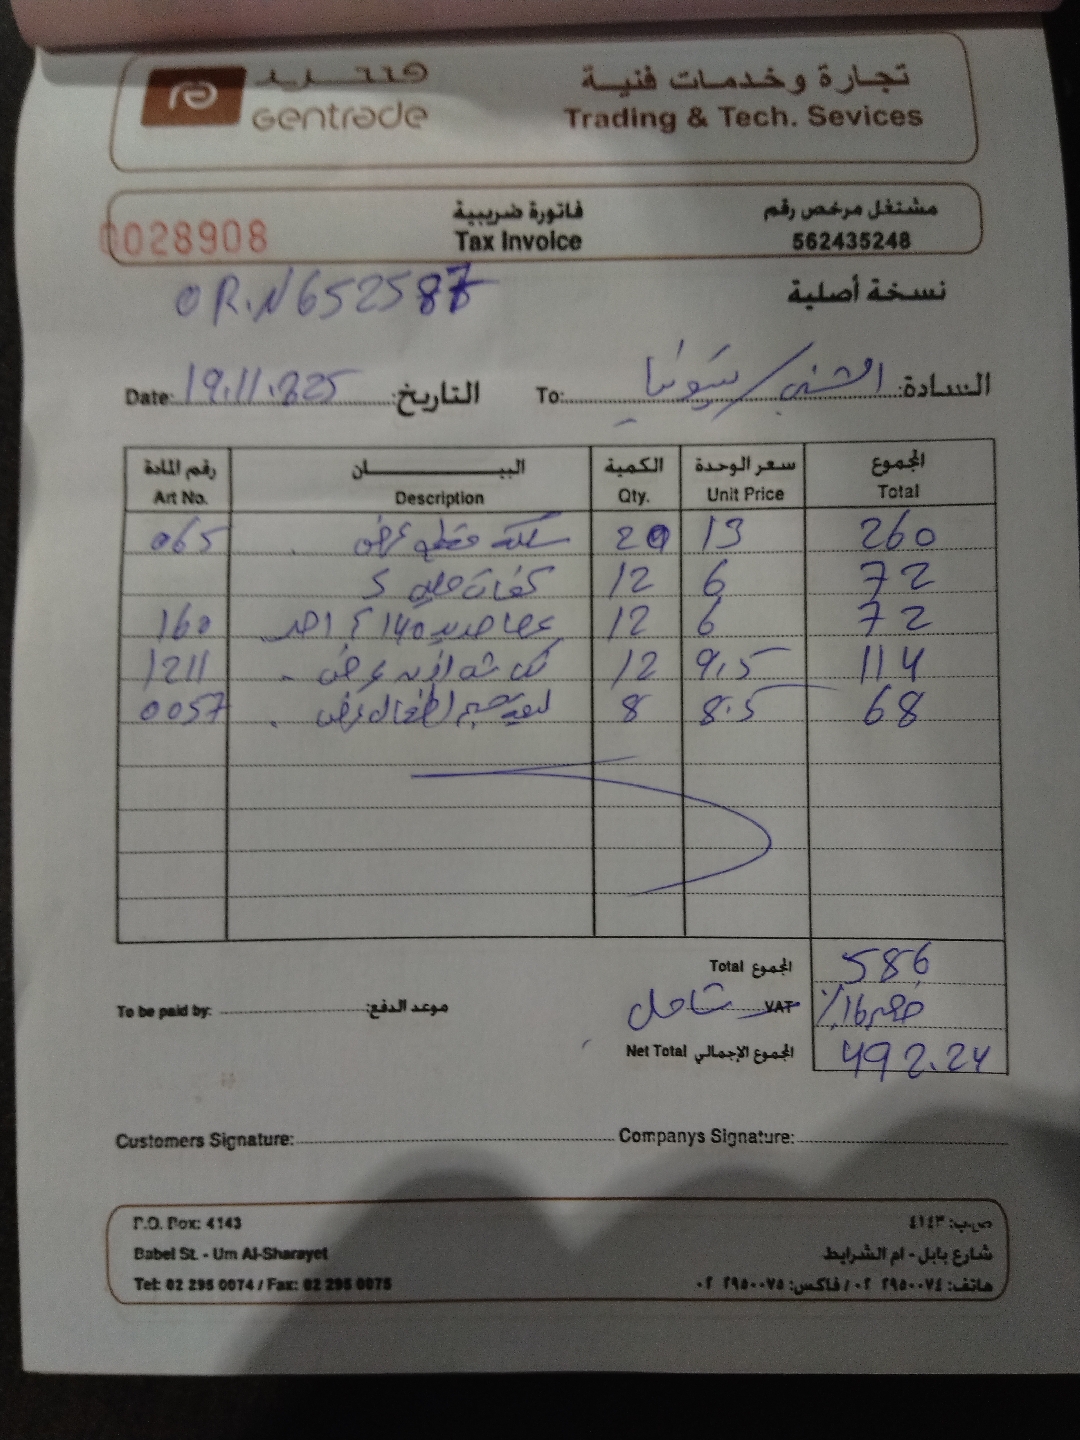 جنتريد
Gentrade
تجارة وخدمات فنية
Trading & Tech. Sevices
0028908
فاتورة ضريبية
Tax Invoice
مشتغل مرخص رقم
562435248
نسخة أصلية
OR.N652587
السادة:
To:
التاريخ: 19.11.2025
Date:
رقم المادة البيـــان الكمية سعر الوحدة المجموع
Art No. Description Qty. Unit Price Total
065 عرض 20 13 260
12 6 72
160 12 6 72
1211 عرض 12 9.5 114
0057 عرض 8 8.5 68
Total المجموع 586
To be paid by: موعد الدفع:
شامل VAT خصم 16%
Net Total المجموع الإجمالي 492.24
Customers Signature: Companys Signature:
P.O. Box: 4143 ص.ب: ٤١٤٣
Babel St. - Um Al-Sharayet شارع بابل - ام الشرايط
Tel: 02 295 0074 / Fax: 02 295 0075 هاتف: ٢٩٥٠٠٧٤ ٠٢ / فاكس: ٢٩٥٠٠٧٥ ٠٢